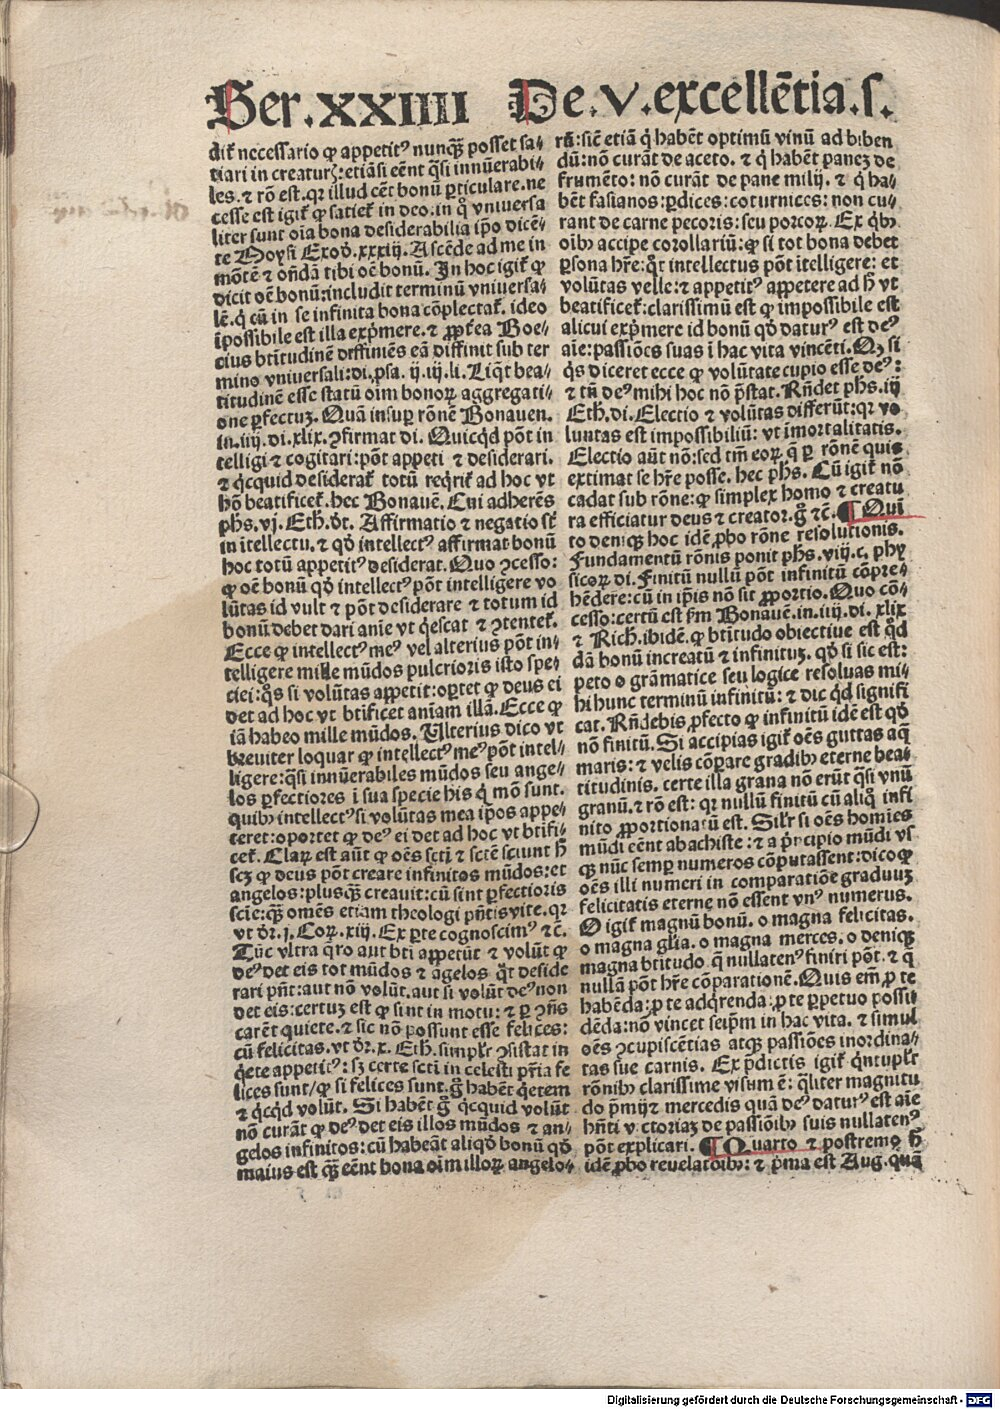 Ser.XXIIII De.V.excellētia.ſ.
dit̄ neceſſario ꝙ appetitꝰ nunq̄ꝫ poſſet ſa⸗
tiari in creaturꝭ: etiāſi eēnt q̄ſi innūerabi⸗
les. ⁊ rō eſt. qꝛ illud cēt bonū ꝑticulare. ne
ceſſe eſt igit̄ ꝙ ſatiet̄ in deo. in q̊ vniuerſa
liter ſunt oīa bona deſiderabilia ip̄o dicē⸗
te Moyſi Exoď.xxxiij. Aſcēde ad me in
mōtē ⁊ oñdā tibi oē bonū. In hoc igit̄ ꝙ
dicit oē bonū: includit terminū vniuerſa⸗
lē. q̇ cū in ſe infinita bona cōplectat̄. ideo
īpoſſibile eſt illa exp̄mere. ⁊ ꝓpt̄ea Boe⸗
cius btītudinē deffiniēs eā diffinit ſub ter
mino vniuerſali: di. ꝓſa. ij. iij. li. Liq̇t bea⸗
titudinē eſſe ſtatū oīm bonoꝝ aggregati⸗
one ꝑfectuꝫ. Quā inſuꝑ rōnē Bonauen.
in. iiij. di. xlix. ꝯfirmat di. Quicq̇d pōt in
telligi ⁊ cogitari: pōt appeti ⁊ deſiderari.
⁊ q̇cquid deſiderat̄ totū req̇rit̄ ad hoc vt
hō beatificet̄. hec Bonauē. Cui adherēs
ph̄s. vj. Eth. ďt. Affirmatio ⁊ negatio ſt̄
in ītellectu. ⁊ qď intellectꝰ affirmat bonū
hoc totū appetitꝰ deſiderat. Quo ꝯceſſo:
ꝙ oē bonū qď intellectꝰ pōt intelligere vo
lūtas id vult ⁊ pōt deſiderare ⁊ totum id
bonū debet dari anīe vt q̇eſcat ⁊ ꝯtentet̄.
Ecce ꝙ intellectꝰ meꝰ vel alterius pōt in⸗
telligere mille mūdos pulcrioris iſto ſpe⸗
ciei: q̊s ſi volūtas appetit: oportet ꝙ deus ei
det ad hoc vt btīficet anīam illā. Ecce ꝙ
iā habeo mille mūdos. Vlterius dico vt
breuiter loquar ꝙ intellectꝰ meꝰ pōt intel⸗
ligere: q̄ſi innūerabiles mūdos ſeu ange⸗
los ꝑfectiores ī ſua ſpecie his q̇ mō ſunt.
quibꝰ intellectꝰ ſi volūtas mea ip̄os appe⸗
teret: oportet ꝙ deꝰ ei det ad hoc vt btīfi⸗
cet̄. Claꝝ eſt aūt ꝙ oēs ſctī ⁊ ſctē ſciunt ħ
ſcꝫ ꝙ deus pōt creare infinitos mūdos: et
angelos: pluſq̄ꝫ creauit: cū ſint ꝑfectioris
ſciē: q̄ꝫ omēs etiam theologi pñtis vite. qꝛ
vt ďr. j. Coꝝ. xiij. Ex ꝑte cognoſcimꝰ ⁊č.
Tūc vltra q̄ro aut bti appetūt ⁊ volūt ꝙ
deꝰ det eis tot mūdos ⁊ āgelos q̊t deſide
rari pñt: aut nō volūt. aut ſi volūt deꝰ non
det eis: certuꝫ eſt ꝙ ſint in motu: ⁊ ꝑ ꝯñs
carēt quiete. ⁊ ſic nō poſſunt eſſe felices:
cū felicitas. vt ďr. x. Eth. ſimplr̄ ꝯſiſtat in
q̇ete appetitꝰ: ſꝫ certe ſctī in celeſti pr̄ia fe
lices ſunt/ ꝙ ſi felices ſunt. g̊ habēt q̇etem
⁊ q̇cq̇d volūt. Si habēt g̊ q̇cquid volūt
nō curāt ꝙ deꝰ det eis illos mūdos ⁊ an⸗
gelos infinitos: cū habeāt aliqď bonū qď
maius eſt q̄ꝫ eēnt bona oīm illoꝝ angelo⸗
rū: ſicē etiā q̇ habēt optimū vinū ad biben
dū: nō curāt de aceto. ⁊ q̇ habēt paneꝫ de
frumēto: nō curāt de pane milij. ⁊ q̇ ha⸗
bēt faſianos: ꝑdices: coturnices: non cu⸗
rant de carne pecoris: ſeu porcoꝝ. Ex q̇bꝰ
oībꝰ accipe corollariū: ꝙ ſi tot bona debet
ꝑſona hr̄e: q̊t intellectus pōt ītelligere: et
volūtas velle: ⁊ appetitꝰ appetere ad ħ vt
beatificet̄: clariſſimū eſt ꝙ impoſſibile eſt
alicui exp̄mere id bonū qď daturꝰ eſt deꝰ
aīe: paſſiōes ſuas ī hac vita vincēti. Qꝫ ſi
q̇s diceret ecce ꝙ volūtate cupio eſſe deꝰ:
⁊ tū deꝰ mihi hoc nō p̄ſtat. Rñdet ph̄s. iij
Eth. di. Electio ⁊ volūtas differūt: qꝛ vo
luntas eſt impoſſibiliū: vt īmortalitatis.
Electio aūt nō: ſed tm̄ eoꝝ q̄ ꝑ rōnē quis
extimat ſe hr̄e poſſe. hec ph̄s. Cū igit̄ nō
cadat ſub rōne: ꝙ ſimplex homo ⁊ creatu
ra efficiatur deus ⁊ creator. g̊ ⁊č. ¶ Quī
to deniqꝫ hoc idē ꝓbo rōne reſolutionis.
Fundamentū rōnis ponit ph̄s. viij. c. phy
ſicoꝝ di. Finitū nullū pōt infinitū cōpre⸗
hēdere: cū in ip̄is nō ſit ꝓportio. Quo cō⸗
ceſſo: certū eſt ſm̄ Bonauē. in. iiij. di. xlix
⁊ Rich. ibidē. ꝙ btītudo obiectiue eſt q̊d
dā bonū increatū ⁊ infinituꝫ. qď ſi ſic eſt:
peto o grāmatice ſeu logice reſoluas mi⸗
hi hunc terminū infinitū: ⁊ dic q̇d ſignifi
cat. Rñdebis ꝓfecto ꝙ infinitū idē eſt qď
nō finitū. Si accipias igit̄ oēs guttas aq̄
maris: ⁊ velis cōpare gradibꝰ eterne bea⸗
titudinis. certe illa grana nō erūt q̄ſi vnū
granū. ⁊ rō eſt: qꝛ nullū finitū cū aliq̊ infi
nito ꝓportionatū eſt. Silr̄ ſi oēs homīes
mūdi eēnt abachiſte: ⁊ a p̄ncipio mūdi vſ
qꝫ nūc ſemꝑ numeros cōputaſſent: dico ꝙ
oēs illi numeri in comparatiōe graduuꝫ
felicitatis eterne nō eſſent vnꝰ numerus.
O igit̄ magnū bonū. o magna felicitas.
o magna gl̄ia. o magna merces. o deniqꝫ
magna btītudo q̄ nullatenꝰ finiri pōt. ⁊ q̄
nullā pōt hr̄e cōparationē. Quis em̄ ꝓ te
habēda: ꝓ te adq̇renda: ꝓ te ꝑpetuo poſſi
dēda: nō vincet ſeip̄m in hac vita. ⁊ ſimul
oēs ꝯcupiſcētias atqꝫ paſſiōes inordina⸗
tas ſue carnis. Ex p̄dictis igit̄ q̇ntuplr̄
rōnibꝰ clariſſime viſum ē: q̄liter magnitu
do p̄mij ⁊ mercedis quā deꝰ daturꝰ eſt aīe
hñti victoriaꝫ de paſſiōibꝰ ſuis nullatenꝰ
pōt explicari. ¶ Quarto ⁊ poſtremo ħ
idē ꝓbo reuelatoībꝰ: ⁊ p̄ma eſt Aug. quā
Digitalisierung gefördert durch die Deutsche Forschungsgemeinschaft - DFG